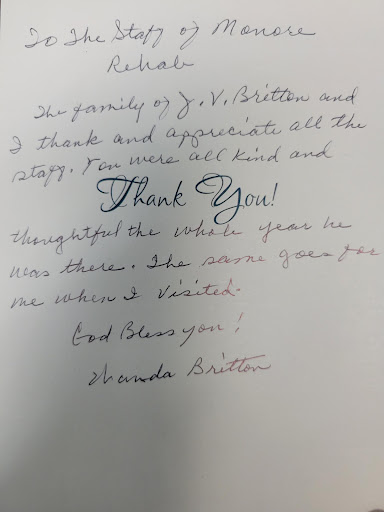 To The Staff of Monore
Rehab
The family of J. V. Britton and
I thank and appreciate all the
staff. You were all kind and
Thank You!
thoughtful the whole year he
was there. The same goes for
me when I visited.
God Bless you!
Britton